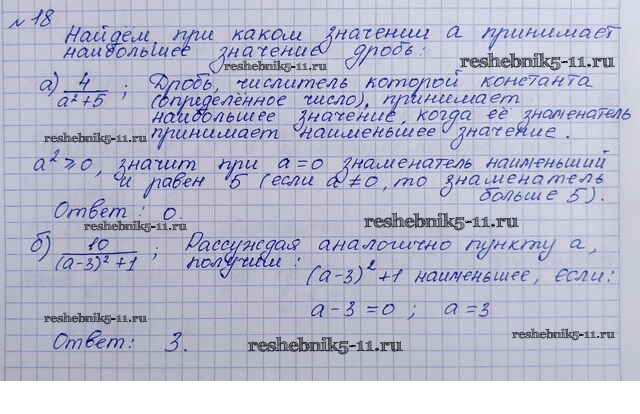 № 18
Найдём, при каком значении а принимает
наибольшее значение дробь:
reshebnik5-11.ru
reshebnik5-11.ru
а) 4/(a²+5) ; Дробь, числитель которой константа
(определённое число), принимает
наибольшее значение, когда её знаменатель
reshebnik5-11.ru
принимает наименьшее значение.
a² ≥ 0, значит при a = 0 знаменатель наименьший
и равен 5 (если a ≠ 0, то знаменатель
больше 5).
Ответ: 0.
reshebnik5-11.ru
reshebnik5-11.ru
б) 10/((a-3)²+1) ; Рассуждая аналогично пункту а,
получим:
(a-3)²+1 наименьшее, если:
a-3 = 0 ; a = 3
reshebnik5-11.ru
Ответ: 3.
reshebnik5-11.ru
reshebnik5-11.ru